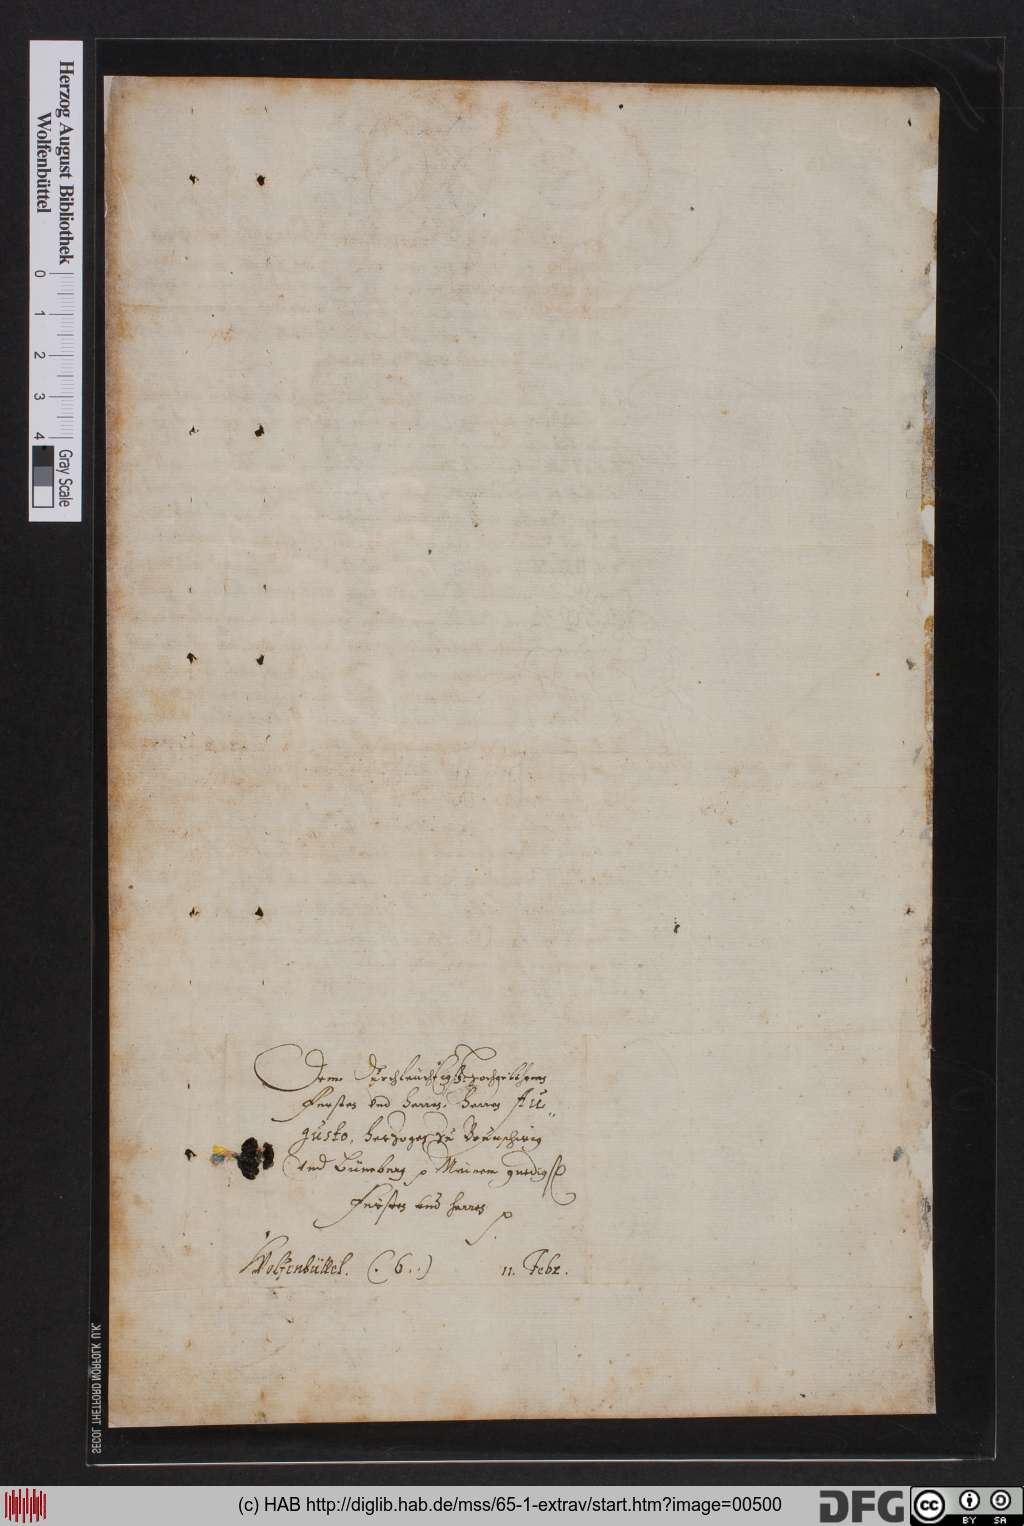 Herzog August Bibliothek
Wolfenbüttel
0 1 2 3 4
Gray Scale
Dem Durchleuchtig Hochgebohrnen
Fursten und Herren, Herren Au„
gusto, Herzogen zu Brunschwig
und Lüneburg p Meinem gnedig
Fürsten und Herren p
Wolfenbüttel. (. 6..) 11. Febr.
SECOL THETFORD NORFOLK U.K.
(c) HAB http://diglib.hab.de/mss/65-1-extrav/start.htm?image=00500
DFG
cc
BY SA